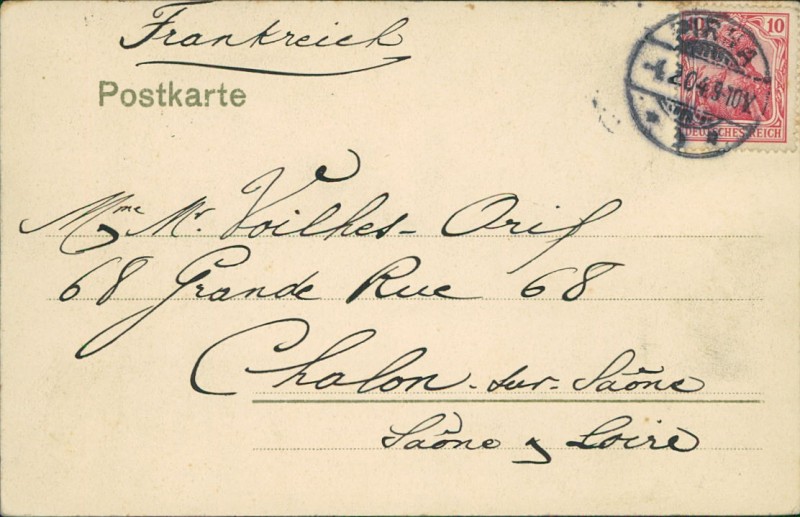 Frankreich
Postkarte
10
PIRNA
4.2.04.9-10V.
DEUTSCHES REICH
Mme Mr. Voilhes-Orif
68 Grande Rue 68
Chalon-sur-Saône
Saône y Loire